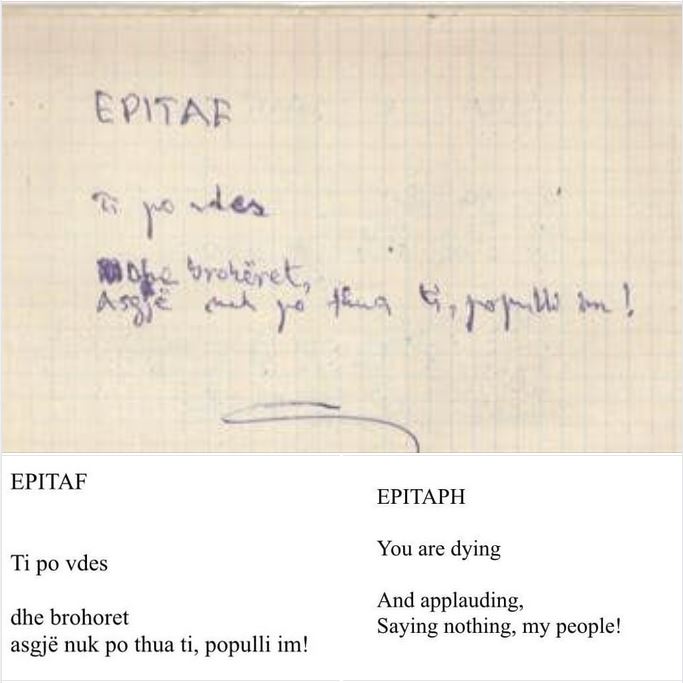 EPITAF
Ti po vdes
dhe brohëret,
Asgjë nuk po thua ti, populli im!
EPITAF
Ti po vdes
dhe brohoret
asgjë nuk po thua ti, populli im!
EPITAPH
You are dying
And applauding,
Saying nothing, my people!